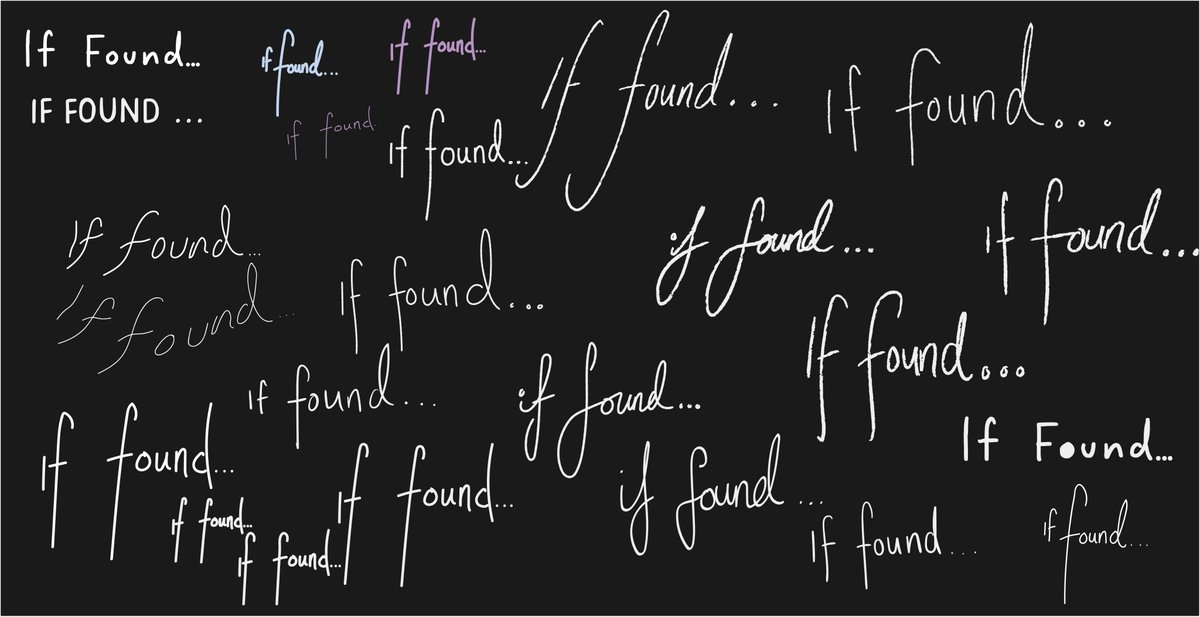 If Found...
If found...
If found...
If found...
If found...
IF FOUND ...
If found
If found...
If found...
if found...
If found...
If found...
If found...
If found...
If found...
if found...
If found...
If Found...
If found...
if found...
If found...
If found...
If found...
If found...